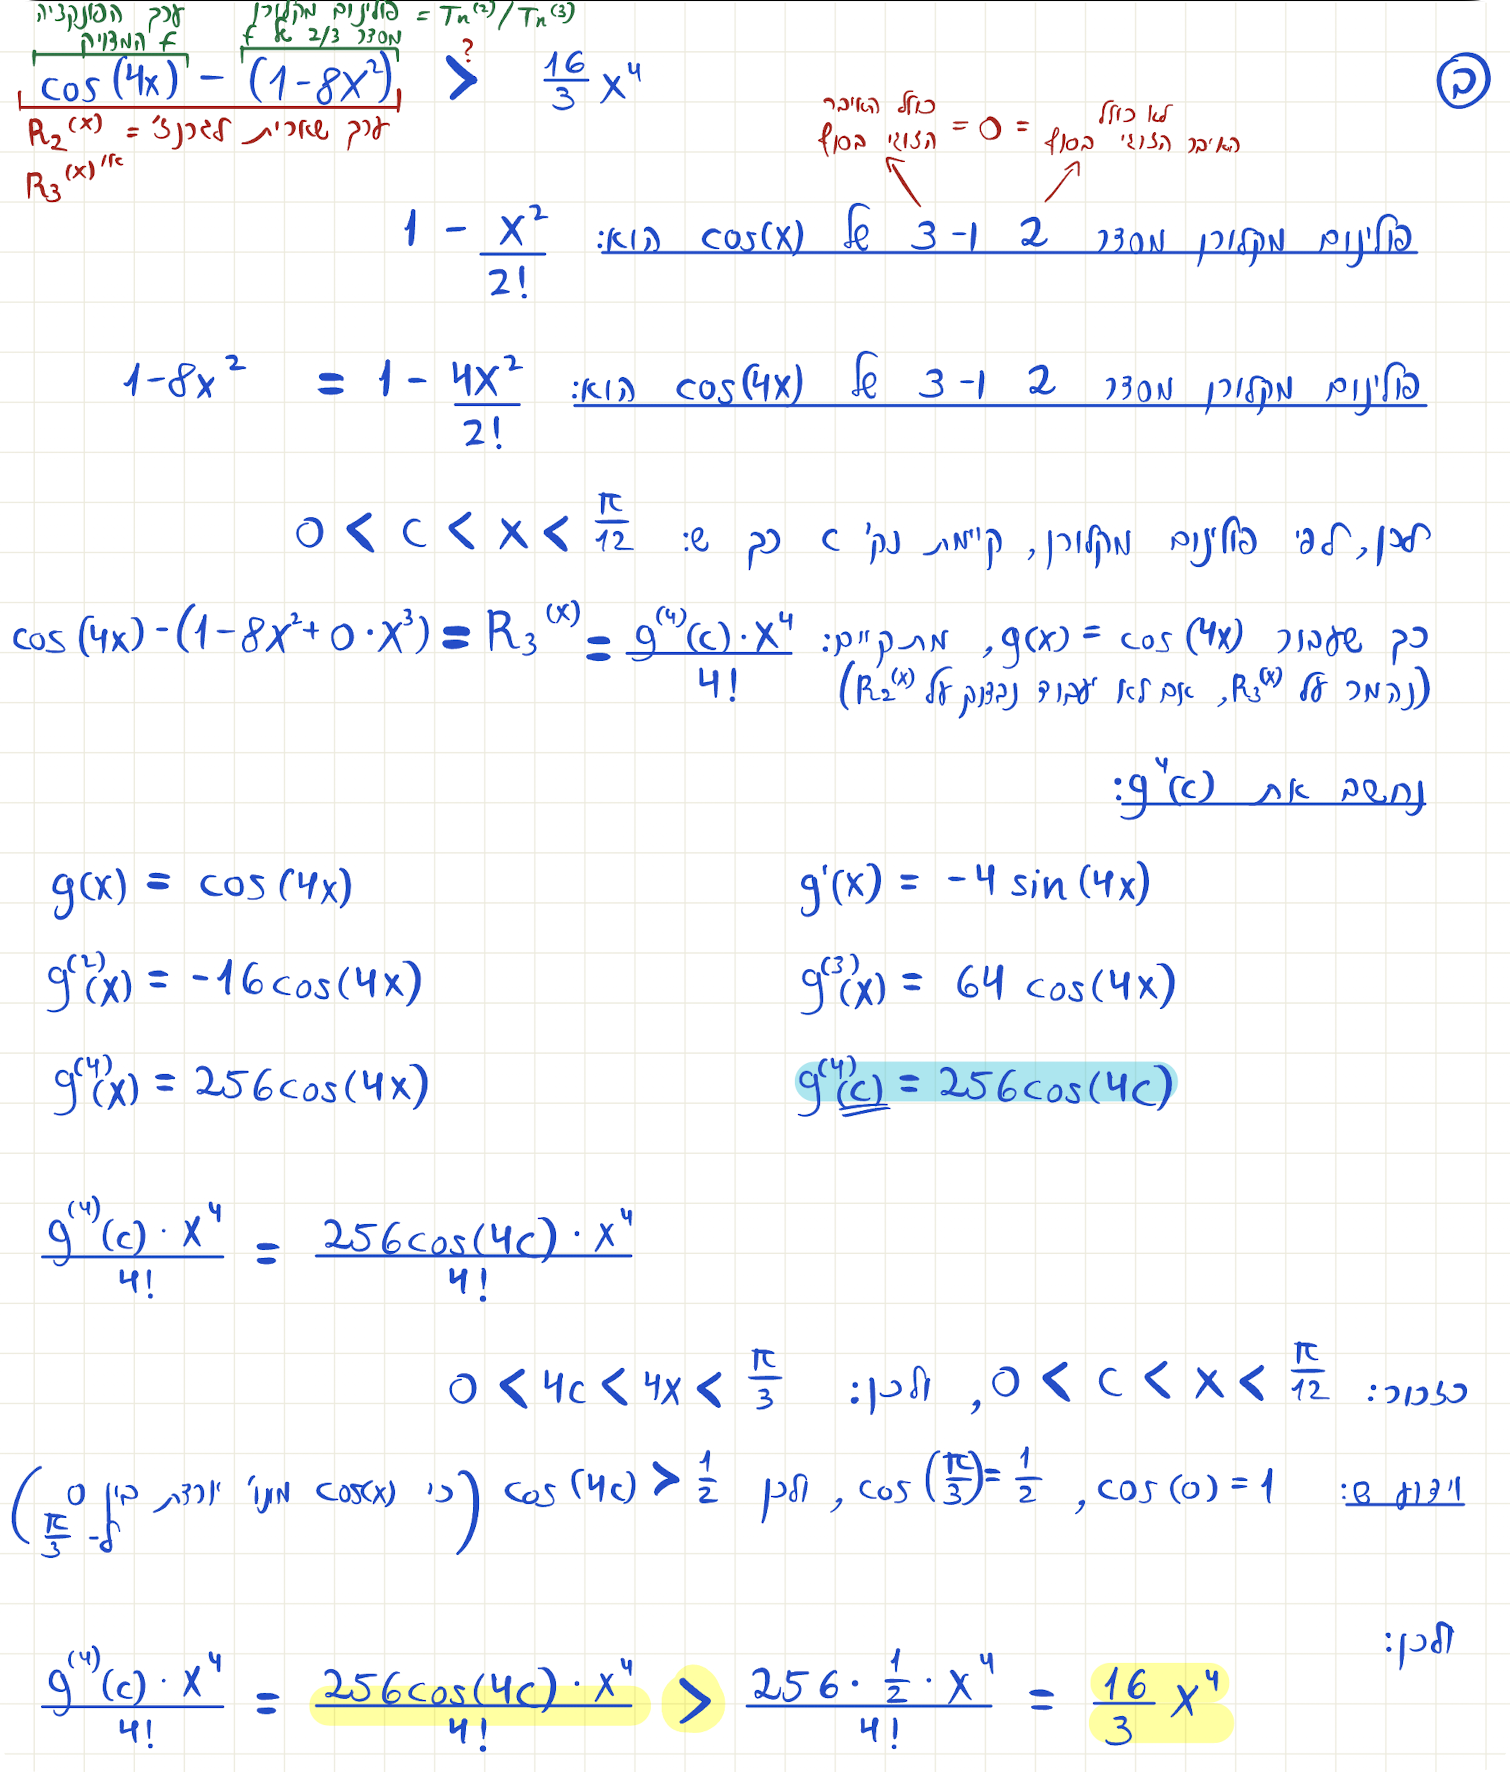 ב
ערך הפונקציה f המדויק
פולינום מקלורן מסדר 2/3 של f = Tn⁽²⁾/Tn⁽³⁾
cos(4x) - (1-8x²) >? 16/3 x⁴
R₂(x) = ערך שארית לגרנז'
או R₃(x)
כולל האיבר הזוגי בסוף = 0 = לא כולל האיבר הזוגי בסוף
פולינום מקלורן מסדר 2 ו-3 של cos(x) הוא: 1 - x²/2!
פולינום מקלורן מסדר 2 ו-3 של cos(4x) הוא: 1-8x² = 1 - 4x²/2!
לכן, לפי פולינום מקלורן, קיימת נק' c כך ש: 0 < c < x < π/12
כך שעבור g(x) = cos(4x), מתקיים: cos(4x)-(1-8x²+0·x³) = R₃(x) = g⁽⁴⁾(c)·x⁴/4!
(נהמר על R₃(x), אם לא יעבוד נבדוק על R₂(x))
נחשב את g⁴(c):
g(x) = cos(4x) g'(x) = -4 sin(4x)
g⁽²⁾(x) = -16cos(4x) g⁽³⁾(x) = 64 cos(4x)
g⁽⁴⁾(x) = 256cos(4x) g⁽⁴⁾(c) = 256cos(4c)
g⁽⁴⁾(c)·x⁴/4! = 256cos(4c)·x⁴/4!
כזכור: 0 < c < x < π/12, ולכן: 0 < 4c < 4x < π/3
וידוע ש: cos(0) = 1, cos(π/3) = 1/2, ולכן cos(4c) > 1/2 (כי cos(x) מונו' יורדת בין 0 ל- π/3)
ולכן:
g⁽⁴⁾(c)·x⁴/4! = 256cos(4c)·x⁴/4! > 256·1/2·x⁴/4! = 16/3 x⁴